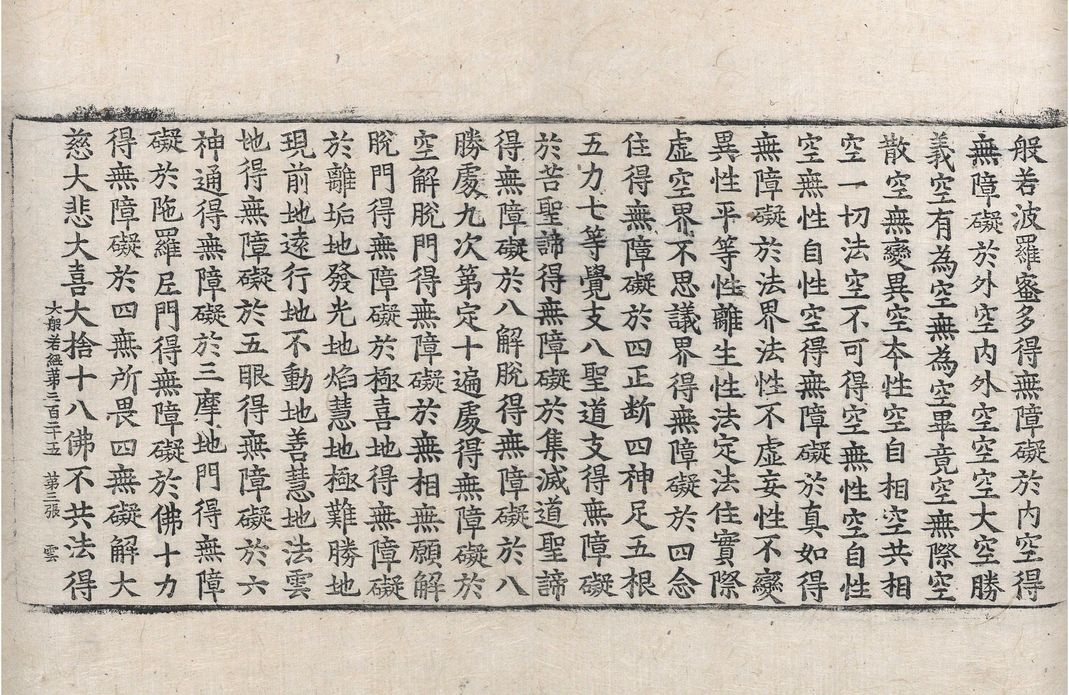 般若波羅蜜多得無障礙於内空得
無障礙於外空内外空空空大空勝
義空有為空無為空畢竟空無際空
散空無變異空本性空自相空共相
空一切法空不可得空無性空自性
空無性自性空得無障礙於真如得
無障礙於法界法性不虛妄性不變
異性平等性離生性法定法住實際
虛空界不思議界得無障礙於四念
住得無障礙於四正断四神足五根
五力七等覺支八聖道支得無障礙
於苦聖諦得無障礙於集滅道聖諦
得無障礙於八解脫得無障礙於八
勝處九次第定十遍處得無障礙於
空解脫門得無障礙於無相無願解
脫門得無障礙於極喜地得無障礙
於離垢地發光地焰慧地極難勝地
現前地遠行地不動地善慧地法雲
地得無障礙於五眼得無障礙於六
神通得無障礙於三摩地門得無障
礙於陁羅尼門得無障礙於佛十力
得無障礙於四無所畏四無礙解大
慈大悲大喜大捨十八佛不共法得
大般若經第三百二十五　第三張　雲